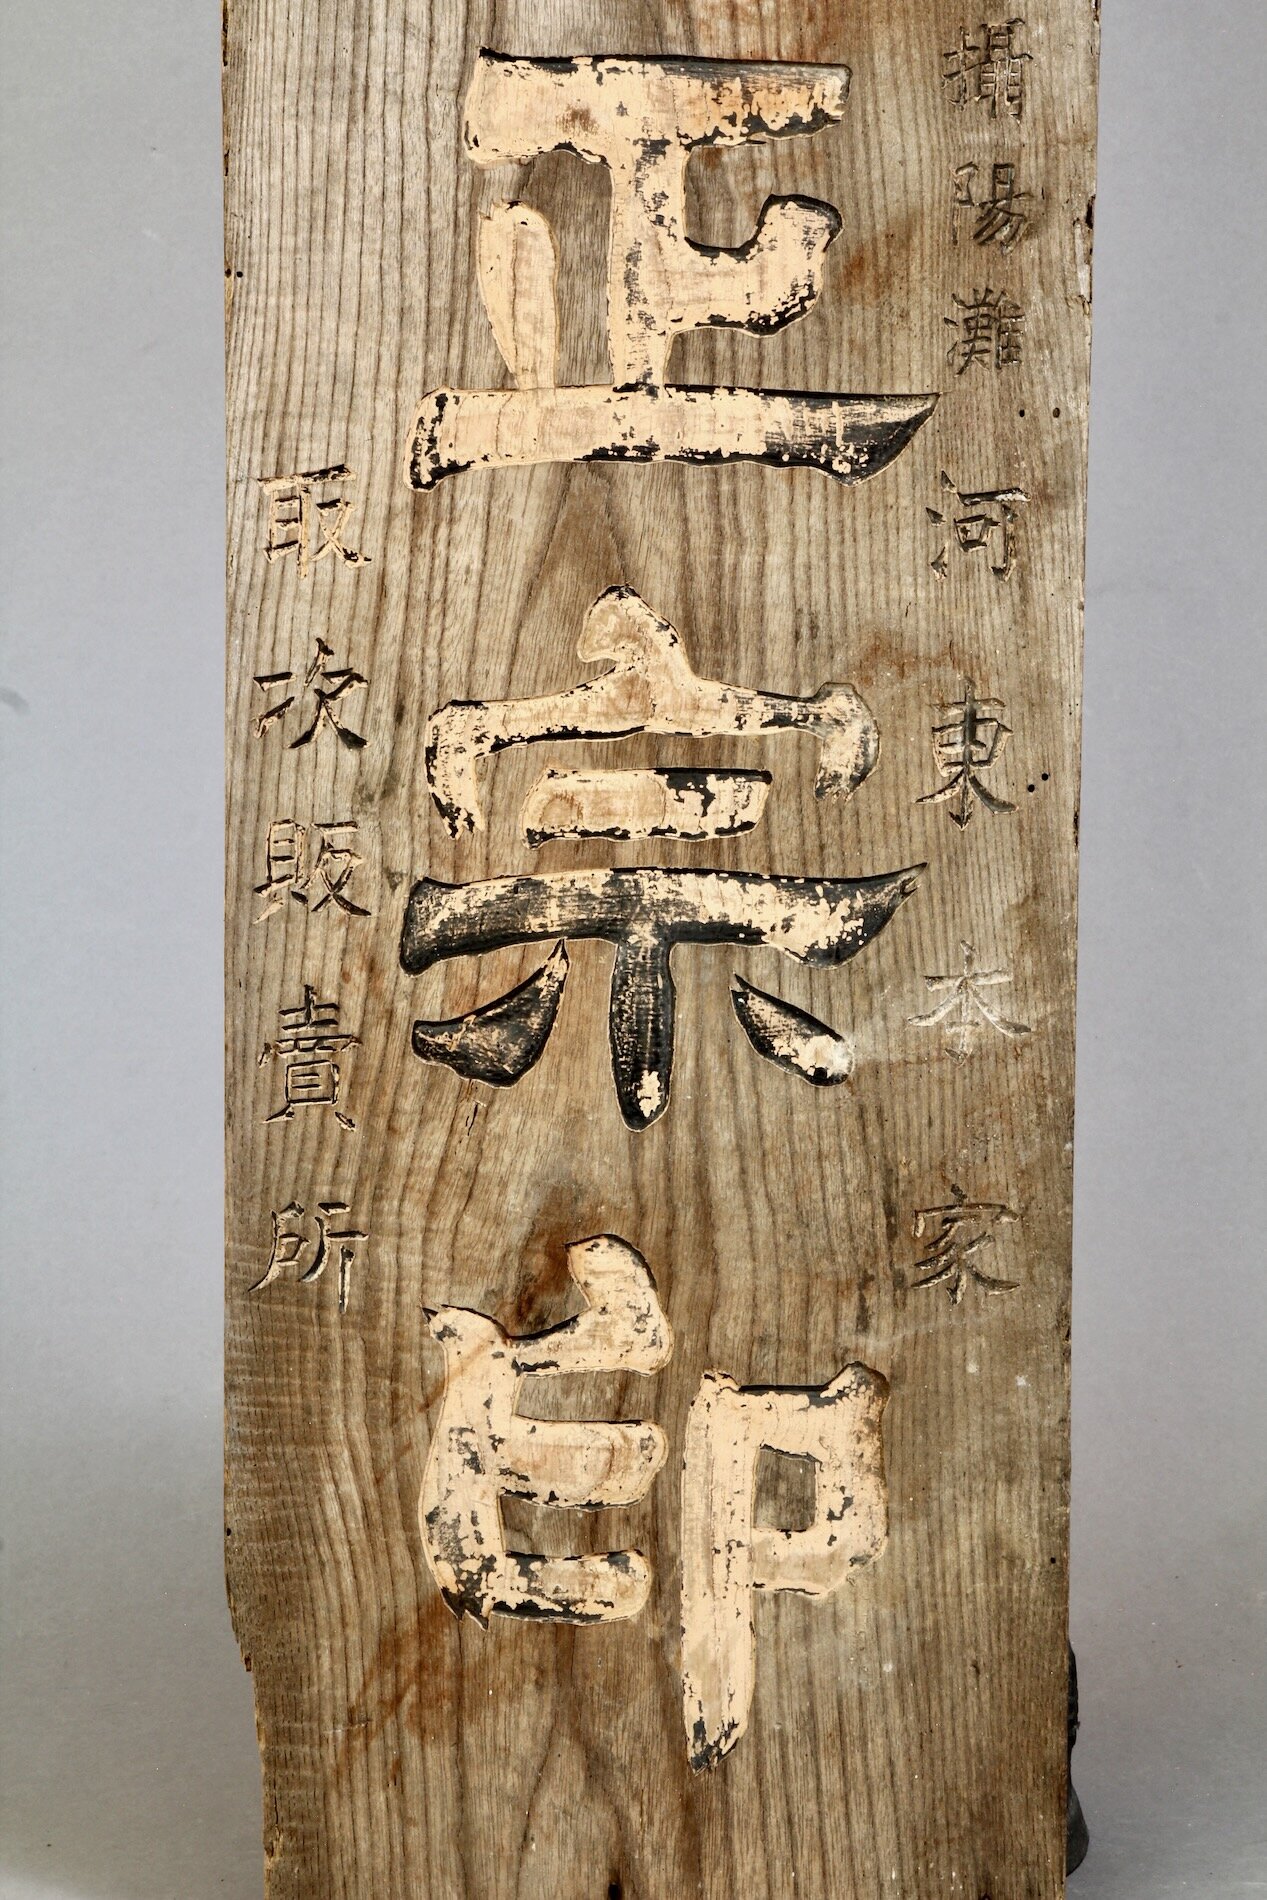 攝陽灘河東本家
正宗印
取次販賣所